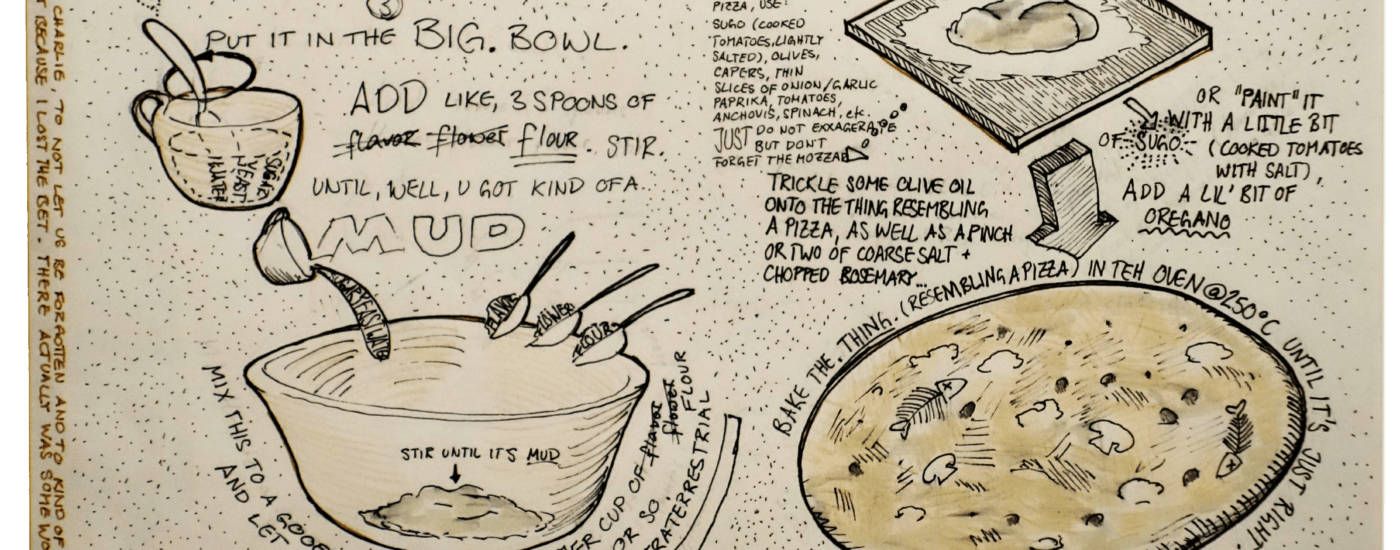 CHARLIE, TO NOT LET US BE FORGOTTEN AND TO KIND OF
BECAUSE I LOST THE BET. THERE ACTUALLY WAS SOME WO
3
PUT IT IN THE BIG. BOWL.
ADD LIKE, 3 SPOONS OF
flavor flower flour. STIR.
UNTIL, WELL, U GOT KIND OF A
MUD
SUGAR
YEAST
WATER
FLAVOR
FLOWER
FLOUR
STIR UNTIL IT'S MUD
MIX THIS TO A GOOE
AND LET
CUP OF flavor
flower FLOUR
OR SO.
PIZZA, USE:
SUGO (COOKED
TOMATOES, LIGHTLY
SALTED), OLIVES,
CAPERS, THIN
SLICES OF ONION/GARLIC
PAPRIKA, TOMATOES,
ANCHOVIS, SPINACH, etc.
JUST DO NOT EXXAGERAPE
BUT DON'T
FORGET THE MOZZA
OR "PAINT" IT
WITH A LITTLE BIT
OF SUGO (COOKED TOMATOES
WITH SALT),
ADD A LIL' BIT OF
OREGANO
TRICKLE SOME OLIVE OIL
ONTO THE THING RESEMBLING
A PIZZA, AS WELL AS A PINCH
OR TWO OF COARSE SALT +
CHOPPED ROSEMARY...
BAKE THE. THING. (RESEMBLING A PIZZA) IN TEH OVEN @250°C UNTIL IT'S JUST RIGHT.